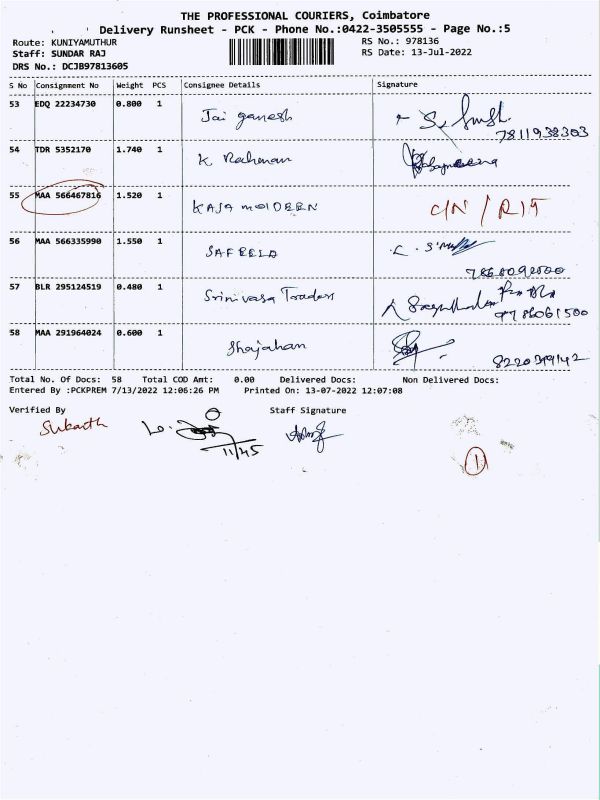 THE PROFESSIONAL COURIERS, Coimbatore
Delivery Runsheet - PCK - Phone No.:0422-3505555 - Page No.:5
Route: KUNIYAMUTHUR RS No.: 978136
Staff: SUNDAR RAJ RS Date: 13-Jul-2022
DRS No.: DCJB97813605
S No Consignment No Weight PCS Consignee Details Signature
53 EDQ 22234730 0.800 1 Jai ganesh
7811938303
54 TDR 5352170 1.740 1 K. Rahman
55 MAA 566467816 1.520 1 KAJA MOIDEEN C/N /
56 MAA 566335990 1.550 1 SAFEELA
57 BLR 295124519 0.480 1 Srinivasa Traders
9786061500
58 MAA 291964024 0.600 1 Shajahan
8220319142
Total No. Of Docs: 58 Total COD Amt: 0.00 Delivered Docs: Non Delivered Docs:
Entered By :PCKPREM 7/13/2022 12:06:26 PM Printed On: 13-07-2022 12:07:08
Verified By Staff Signature
11/45
1